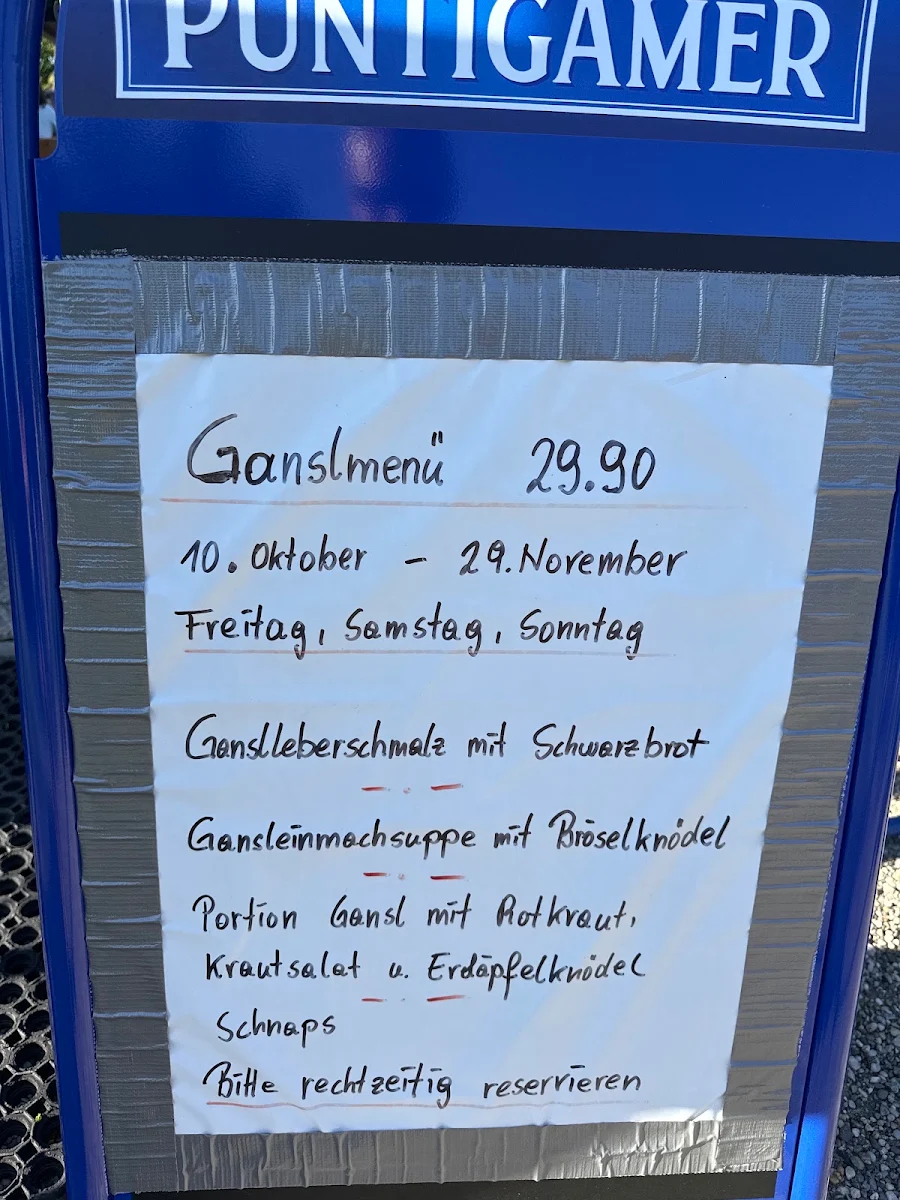 PUNTIGAMER
Ganslmenü 29.90
10. Oktober - 29. November
Freitag, Samstag, Sonntag
Ganslleberschmalz mit Schwarzbrot
Gansleinmachsuppe mit Bröselknödel
Portion Gansl mit Rotkraut,
Krautsalat u. Erdäpfelknödel
Schnaps
Bitte rechtzeitig reservieren